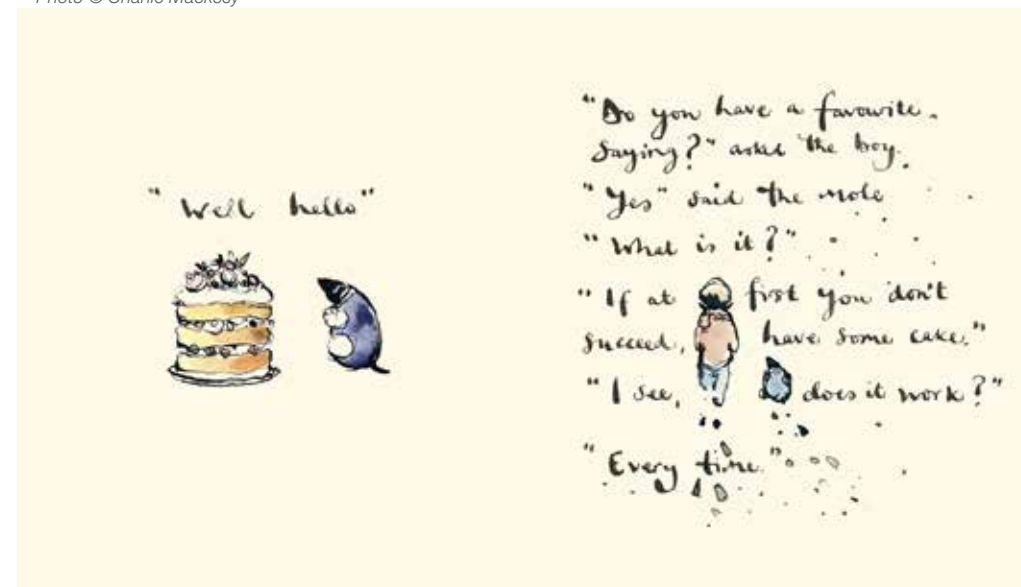 Photo © Charlie Mackesy
"Well hello"
"Do you have a favourite
Saying?" asked the boy.
"Yes" said the mole
"What is it?"
"If at first you don't
succeed, have some cake."
"I see, does it work?"
"Every time."